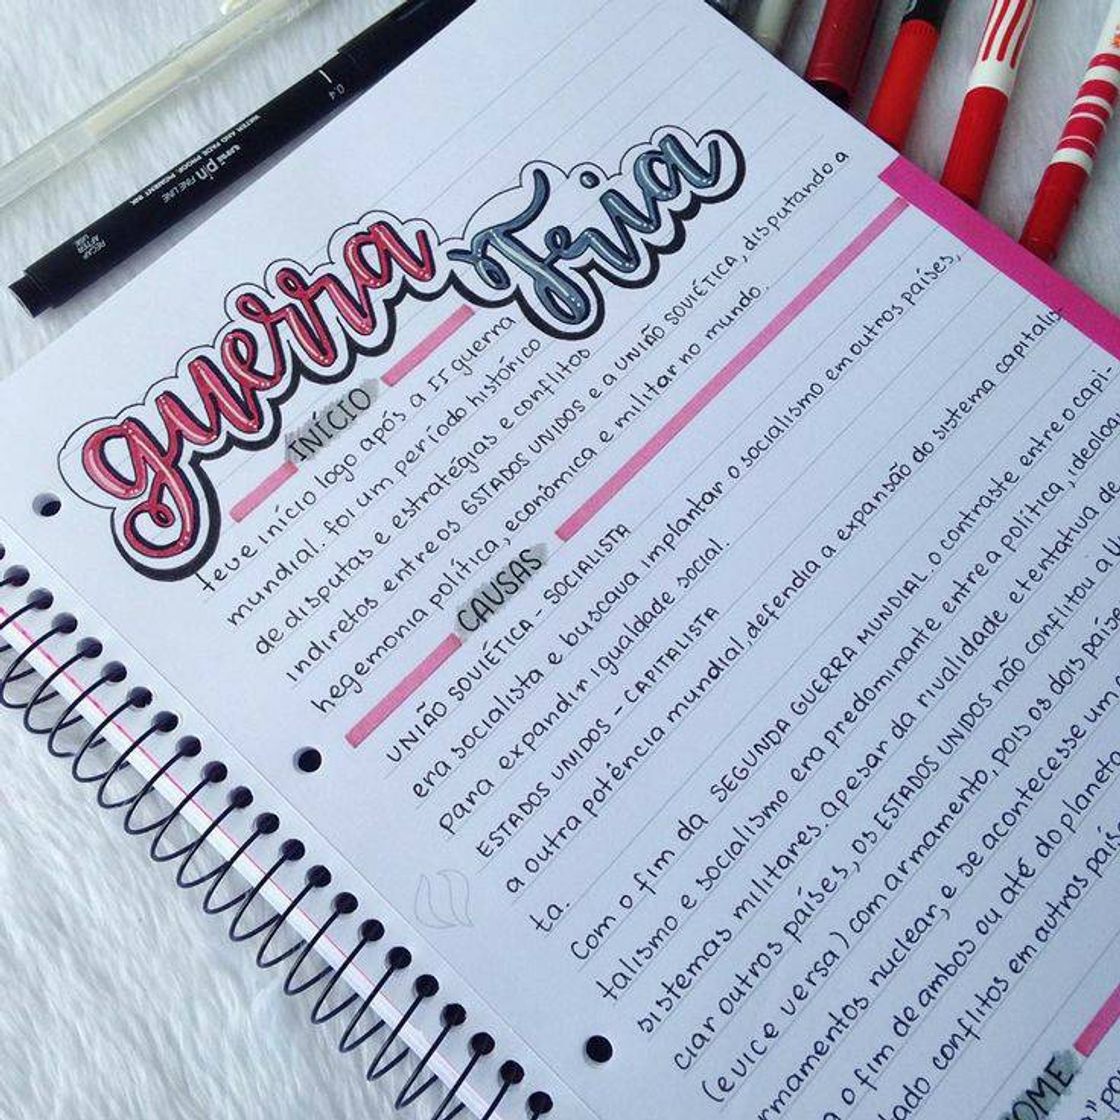 guerra Fria
INÍCIO
teve início logo após a II guerra
mundial. foi um período histórico
de disputas e estratégias e conflitos
indiretos entre os ESTADOS UNIDOS e a UNIÃO SOVIÉTICA, disputando a
hegemonia política, econômica e militar no mundo.
CAUSAS
UNIÃO SOVIÉTICA - SOCIALISTA
era socialista e buscava implantar o socialismo em outros países,
para expandir igualdade social.
ESTADOS UNIDOS - CAPITALISTA
a outra potência mundial, defendia a expansão do sistema capitalis
ta.
Com o fim da SEGUNDA GUERRA MUNDIAL. o contraste entre o capi-
talismo e socialismo era predominante entre a política, ideolog
sistemas militares. apesar da rivalidade e tentativa de
ciar outros países, os ESTADOS UNIDOS não conflitou a
(e vice versa) com armamento, pois os dois países
rmamentos nuclear, e se acontecesse um
a o fim de ambos ou até do planeta
ado conflitos em outros país
OME
uni pin FINE LINE
WATER AND FADE PROOF, PIGMENT INK
0.4
RECAP
AFTER
USE